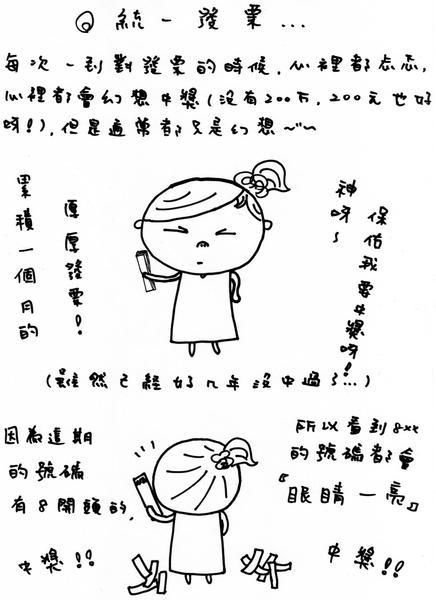 統一發票...
每次一到對發票的時候,心裡都忐忑,
心裡都會幻想中獎(沒有200万,200元也好
呀!),但是通常都只是幻想~~
累積一個月的
厚厚發票!
神呀~
保佑我要中獎呀!
(雖然已經好几年沒中過了...)
因為這期
的號碼
有8開頭的,
中獎!!
所以看到8xx
的號碼都會
『眼睛一亮』
中獎!!